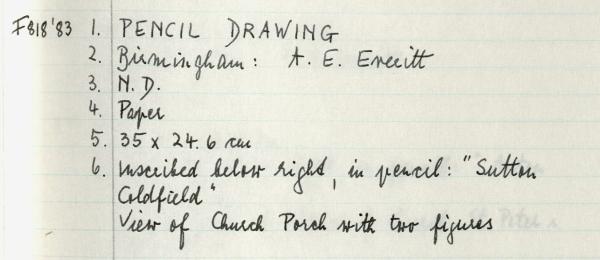 F818'83 1. PENCIL DRAWING
2. Birmingham: A. E. Everitt
3. N.D.
4. Paper
5. 35 x 24.6 cm
6. Inscribed below right, in pencil: "Sutton
Coldfield"
View of Church Porch with two figures